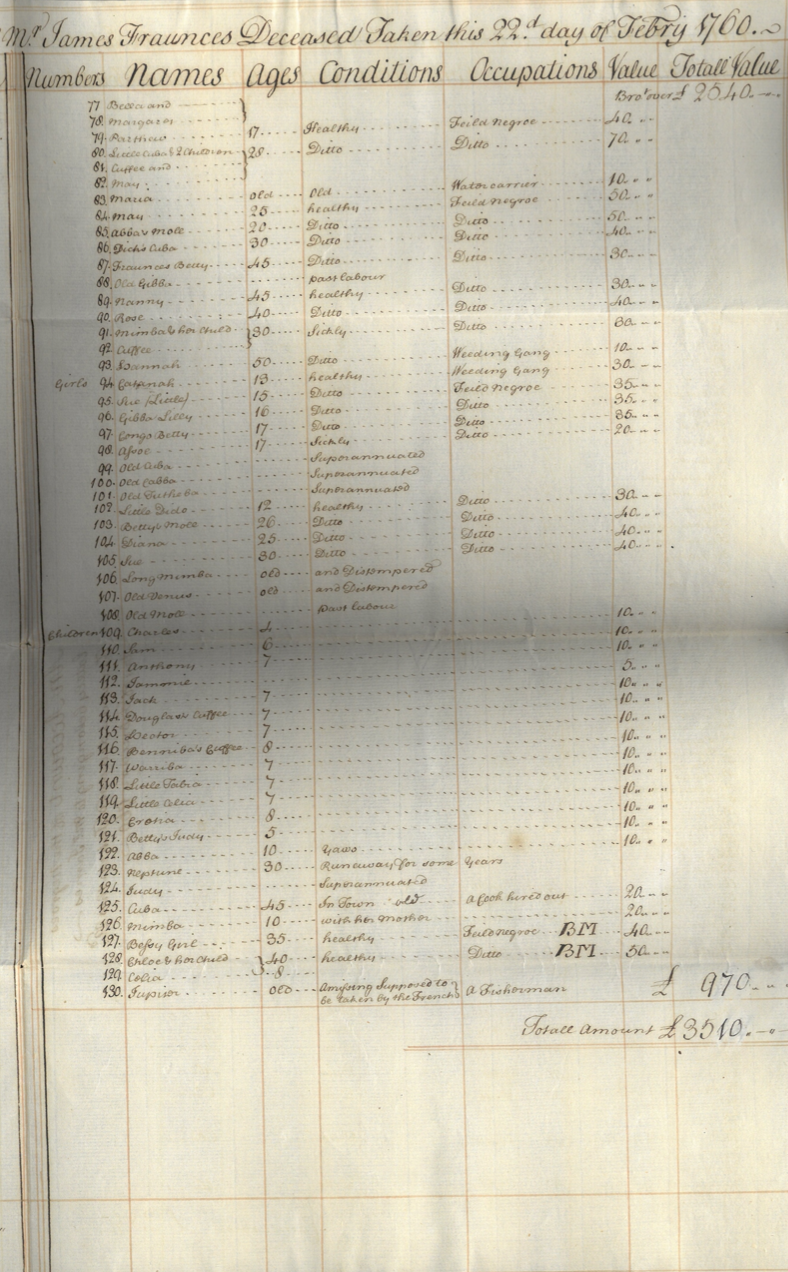 Mr. James Fraunces Deceased Taken this 22.d day of Febry 1760.
Numbers Names Ages Conditions Occupations Value Totall Value
Bro.t over £ 2540
77 Becca and
78. Margaret 40
79. Parthew 17 Healthy Feild Negroe 70
80. Little Cuba & 2 Children 28 Ditto Ditto
81. Cuffee and
82. May
83. Maria old Old Water carrier 10
84. May 25 healthy Feild Negroe 50
85. Abba's Moll 20 Ditto Ditto 50
86. Dick's Cuba 30 Ditto Ditto 40
87. Fraunces Betty 45 Ditto Ditto 30
88. Old Gibba past labour
89. Nanny 45 healthy Ditto 30
90. Rose 40 Ditto Ditto 40
91. Mimba & her Child 30 Sickly Ditto 30
92. Cuffee
93. Hannah 50 Ditto Weeding Gang 10
Girls 94. Catanah 13 healthy Weeding Gang 30
95. Sue (Little) 15 Ditto Feild Negroe 35
96. Gibba Lilly 16 Ditto Ditto 35
97. Congo Betty 17 Ditto Ditto 35
98. 17 Sickly Ditto 20
99. Old Cuba Superannuated
100. Old Cabba Superannuated
101. Old Superannuated
102. Little Dido 12 healthy Ditto 30
103. Betty's Moll 26 Ditto Ditto 40
104. Diana 25 Ditto Ditto 40
105. Sue 30 Ditto Ditto 40
106. Long Mimba old and Distempered
107. Old Venus old and Distempered
108. Old Moll past labour
Children 109. Charles 4 10
110. Sam 6 10
111. Anthony 7 10
112. Jammie 5
113. Jack 7 10
114. Douglas's Cuffee 7 10
115. Hector 7 10
116. Benniba's Cuffee 8 10
117. Warriba 7 10
118. Little Tabia 7 10
119. Little Celia 7 10
120. 8 10
121. Betty's Judy 5 10
122. Abba 10 Yaws 10
123. Neptune 30 Runaway for some Years
124. Judy Superannuated
125. Cuba 45 In Town old A Cook hired out 20
126. Mimba 10 with her Mother 20
127. Bessy Girl 35 healthy Feild Negroe BM 40
128. Chloe & her Child 40 healthy Ditto BM 50
129. Celia 8
130. Jupiter old Amissing Supposed to A Fisherman £ 970
be taken by the French
Totall Amount £ 3510